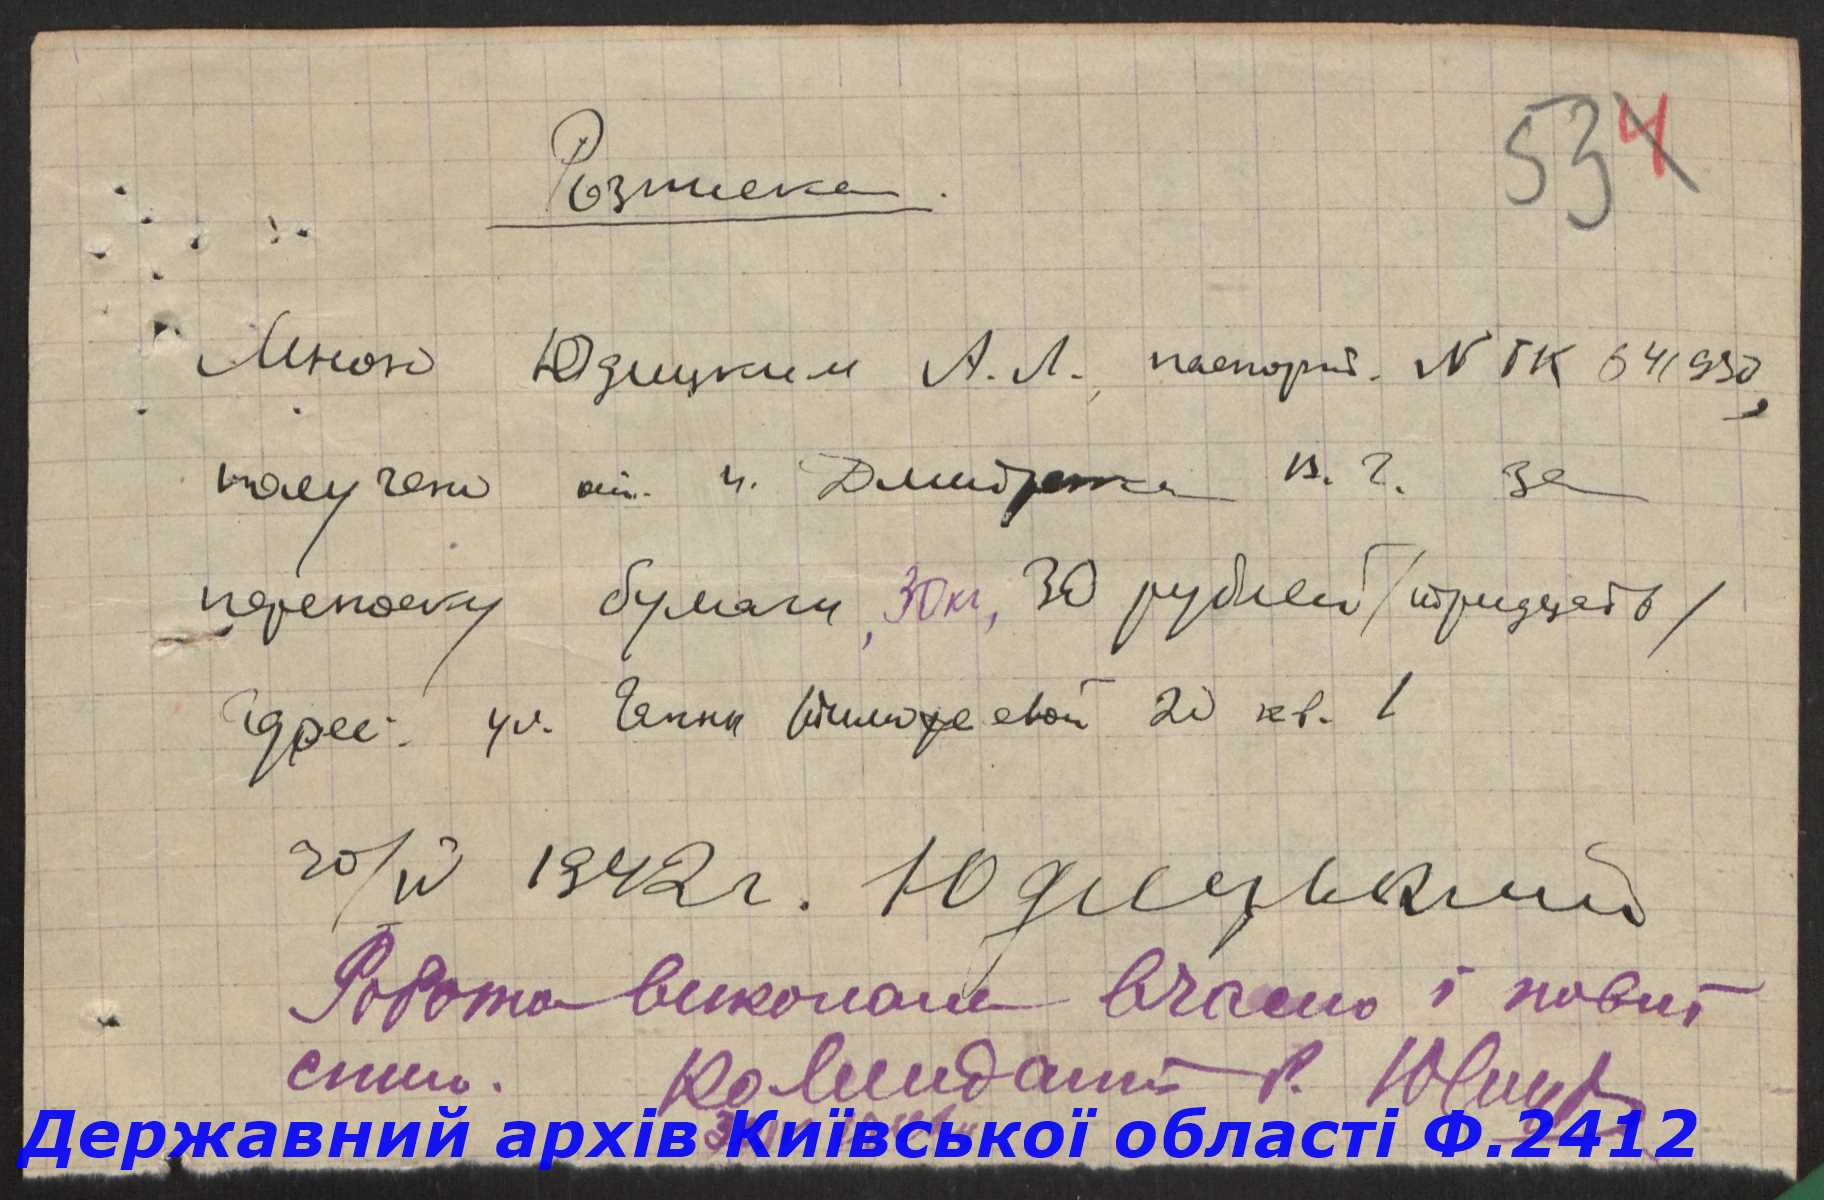 534
Розписка.
Мною Юдицким А. Л., паспорт. N ГК 641930,
получено от. ч. Дмитренка В. Г. за
переноску бумаги, 30 кг, 30 рублей /тридцать/
Адрес: ул. 20 кв. 1
20/IV 1942 г. Юдицький
Робота виконана вчасно і повні
стю. Комендант Р.
Державний архів Київської області Ф.2412